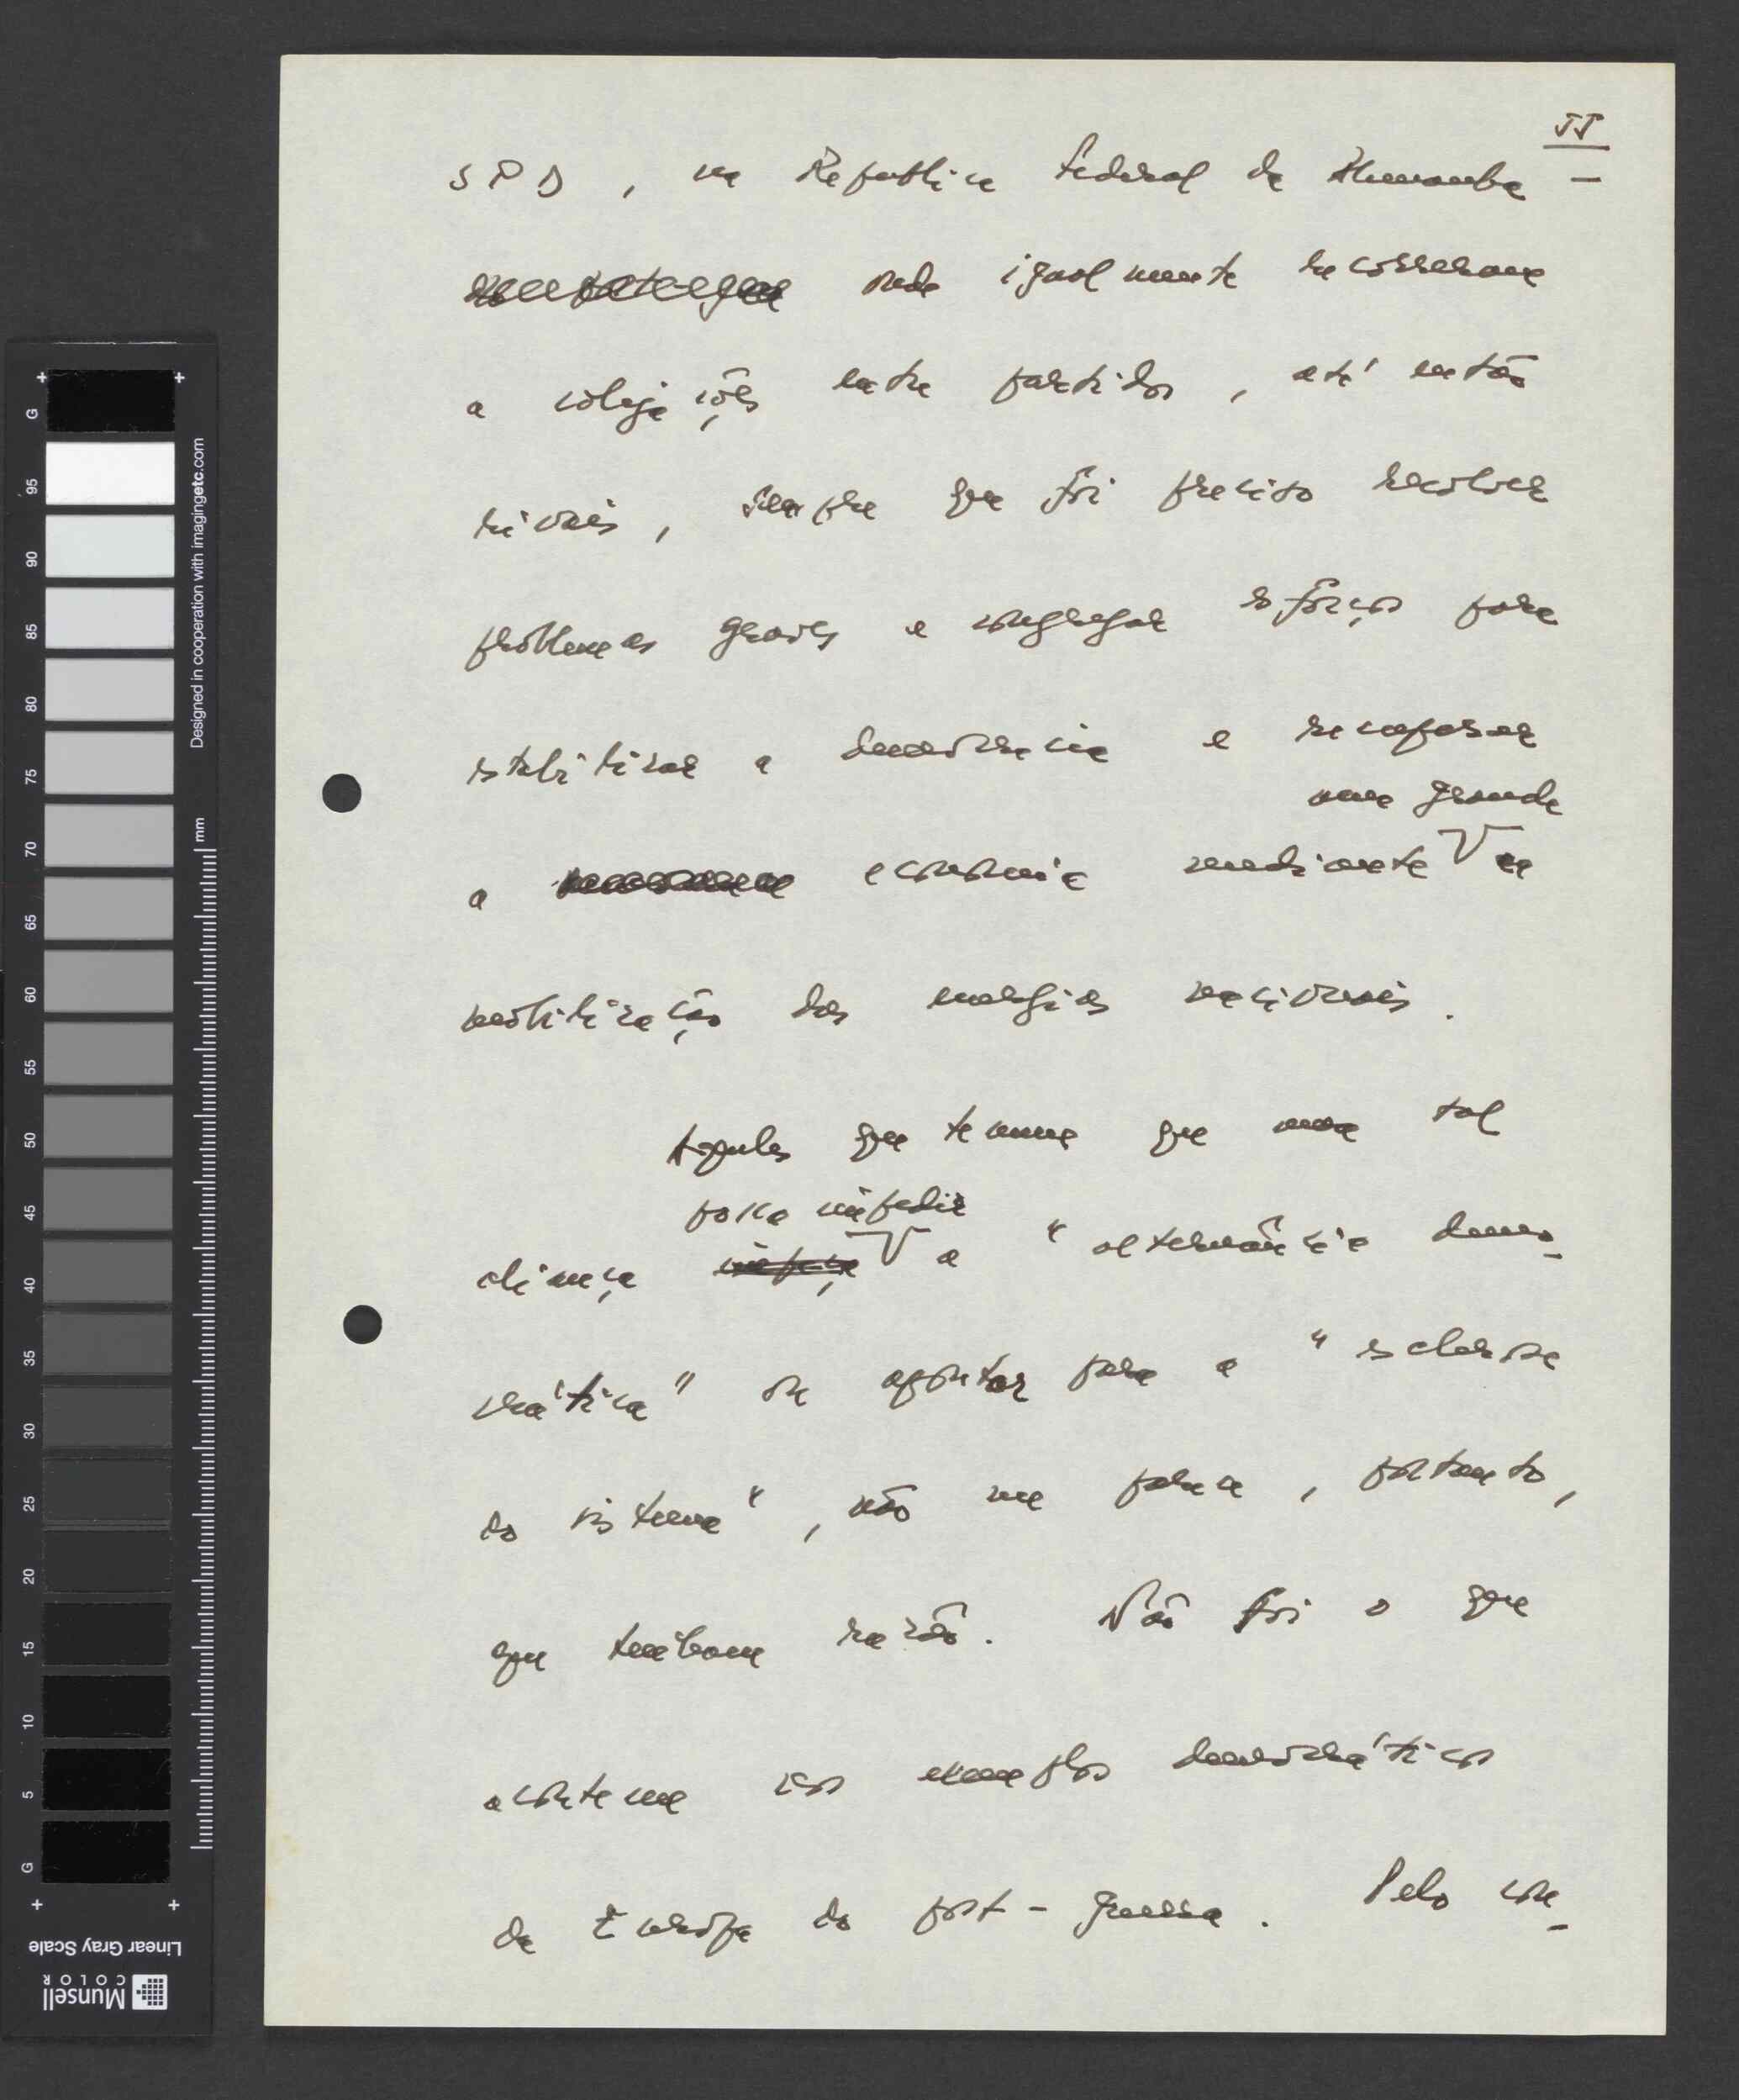 II
SPD, na Republica Federal da Alemanha —
onde igualmente recorreram
a coligações entre partidos, até então
rivais, sempre que foi preciso resolver
problemas graves e congregar esforços para
estabilizar a democracia e recuperar
uma grande
a economia mediante
mobilização das energias nacionais.
Aqueles que temem que uma tal
possa impedir
aliança a "alternância demo-
crática" ou apontar para a "esclerose
do sistema", não me parece, portanto,
que tenham razão. Não foi o que
aconteceu nos exemplos democráticos
da Europa do post-guerra. Pelo con-
G
95
90
85
80
75
70
65
60
55
50
45
40
35
30
25
20
15
10
5
G
mm
Designed in cooperation with imagingetc.com
Linear Gray Scale
Munsell
COLOR